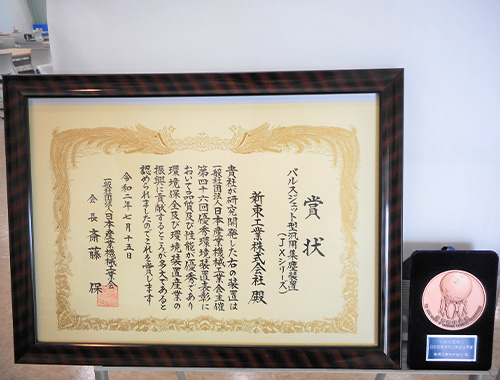 賞状
パルスジェット型汎用集塵装置
(JXシリーズ)
新東工業株式会社 殿
貴社が研究開発した右の装置は
一般社団法人日本産業機械工業会主催
第四十六回優秀環境装置表彰に
おいて品質及び性能が優秀であり
環境保全及び環境装置産業の
振興に貢献するところが多大であると
認められましたのでこれを賞します
令和二年七月十五日
一般社団法人日本産業機械工業会
会長 斎藤 保